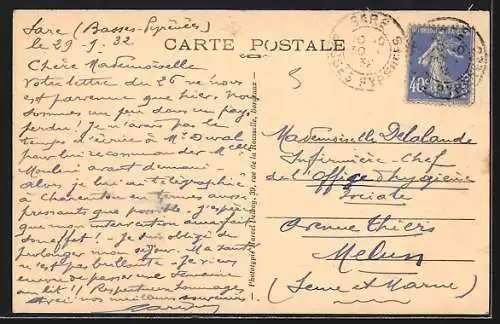 Sare (Basses-Pyrénées)
le 29-1-32
CARTE POSTALE
Chère Mademoiselle
Votre lettre du 26 ne nous
est parvenue que hier. Nous
sommes un peu dans un pays
perdu! Je n'avais pas le
temps d'écrire à Mr Duval
pour lui recommander Melle
Moulin avant demain.
Alors je lui ai télégraphié
à Charenton en termes aussi
pressants que possible. J'espère
que mon intervention aura fait
son effet! - Je suis obligé de
prolonger mon séjour. Ma santé
n'est pas brillante. Je viens
de passer une semaine
au lit!! Respectueux hommages
et nos meilleurs souvenirs!
Phototypie Marcel Delboy, 39, rue de la Rousselle, Bordeaux
SARE
BSES PYRENEES
40c
Mademoiselle Delalande
Infirmière-Chef
de l'Office d'hygiène
Sociale
Avenue Thiers
Melun
(Seine et Marne)